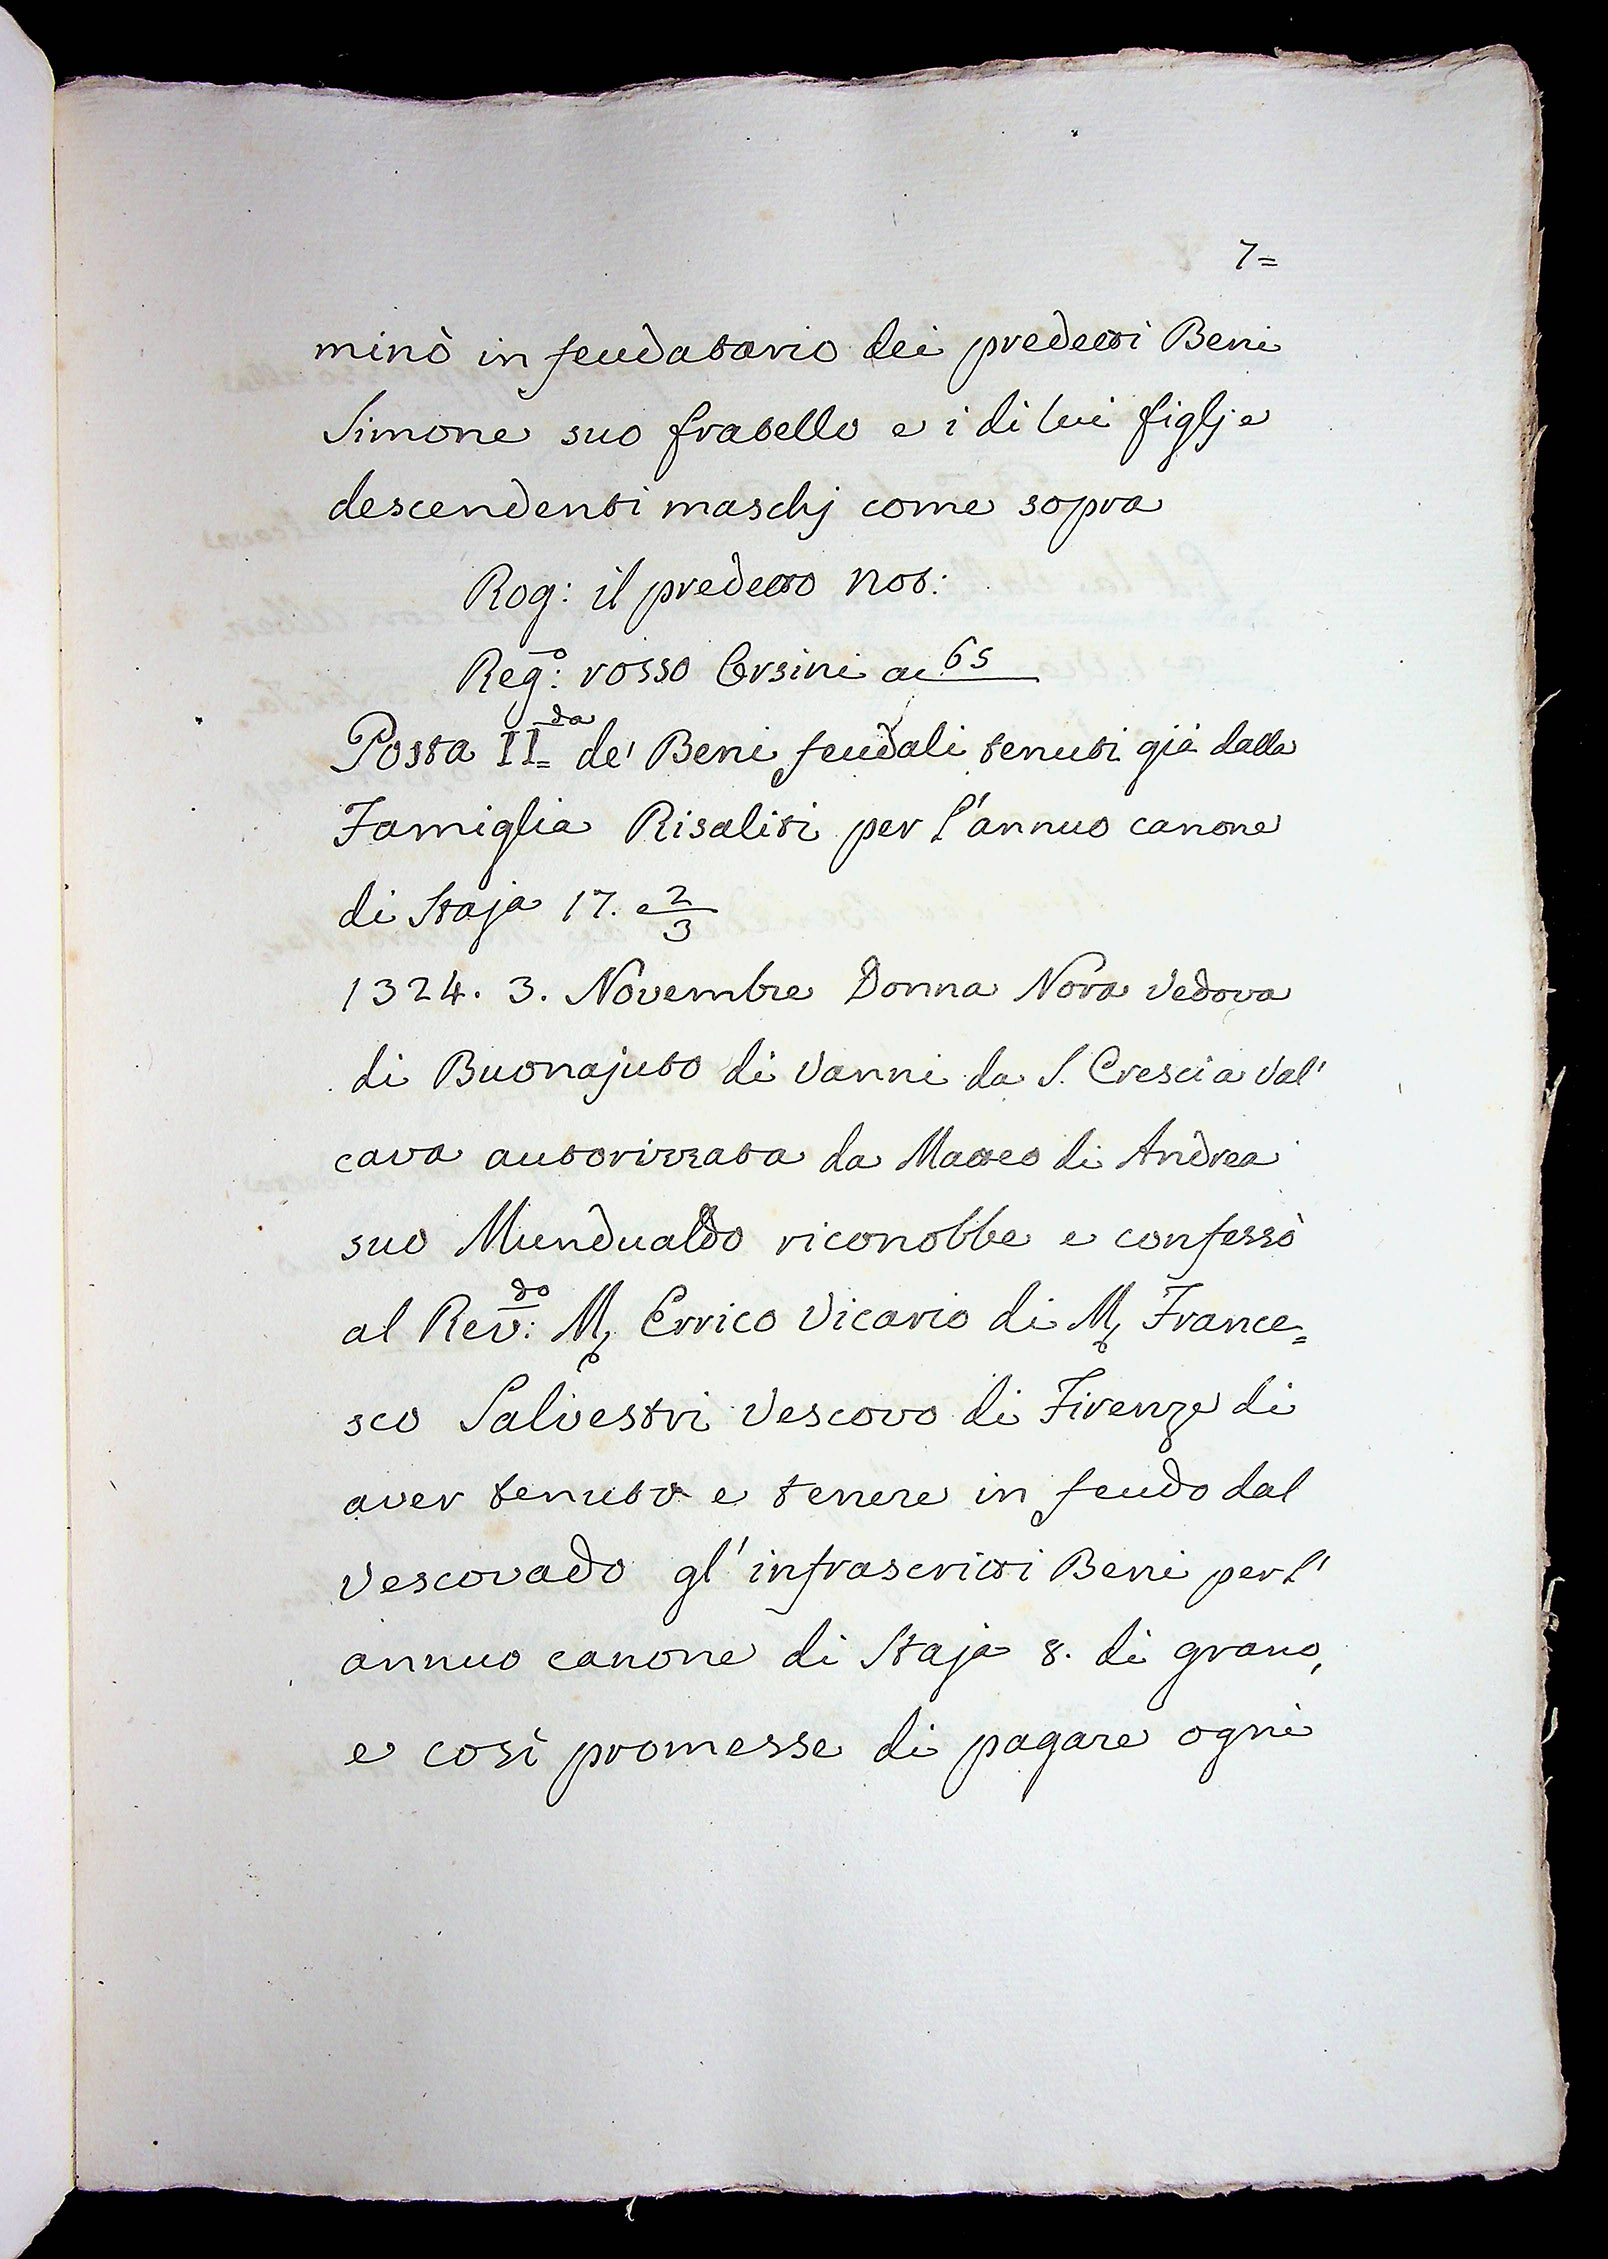 7=
minò in feudatario dei predetti Beni
Simone suo fratello e i di lui figlj e
descendenti maschj come sopra
Rog: il predetto Not:
Reg.º: rosso Orsini a 65
Posta II.da de' Beni feudali tenuti già dalla
Famiglia Risaliti per l'annuo canone
di Staja 17. e 2/3
1324. 3. Novembre Donna Nora Vedova
di Buonajuto di Vanni da S. Cresci a Val'
cava autorizzata da Matteo di Andrea
suo Mundualdo riconobbe e confessò
al Rev:do M. Errico Vicario di M. France=
sco Salvestri Vescovo di Firenze di
aver tenuto e tenere in feudo dal
Vescovado gl'infrascritti Beni per l'
annuo canone di Staja 8. di grano,
e così promesse di pagare ogni